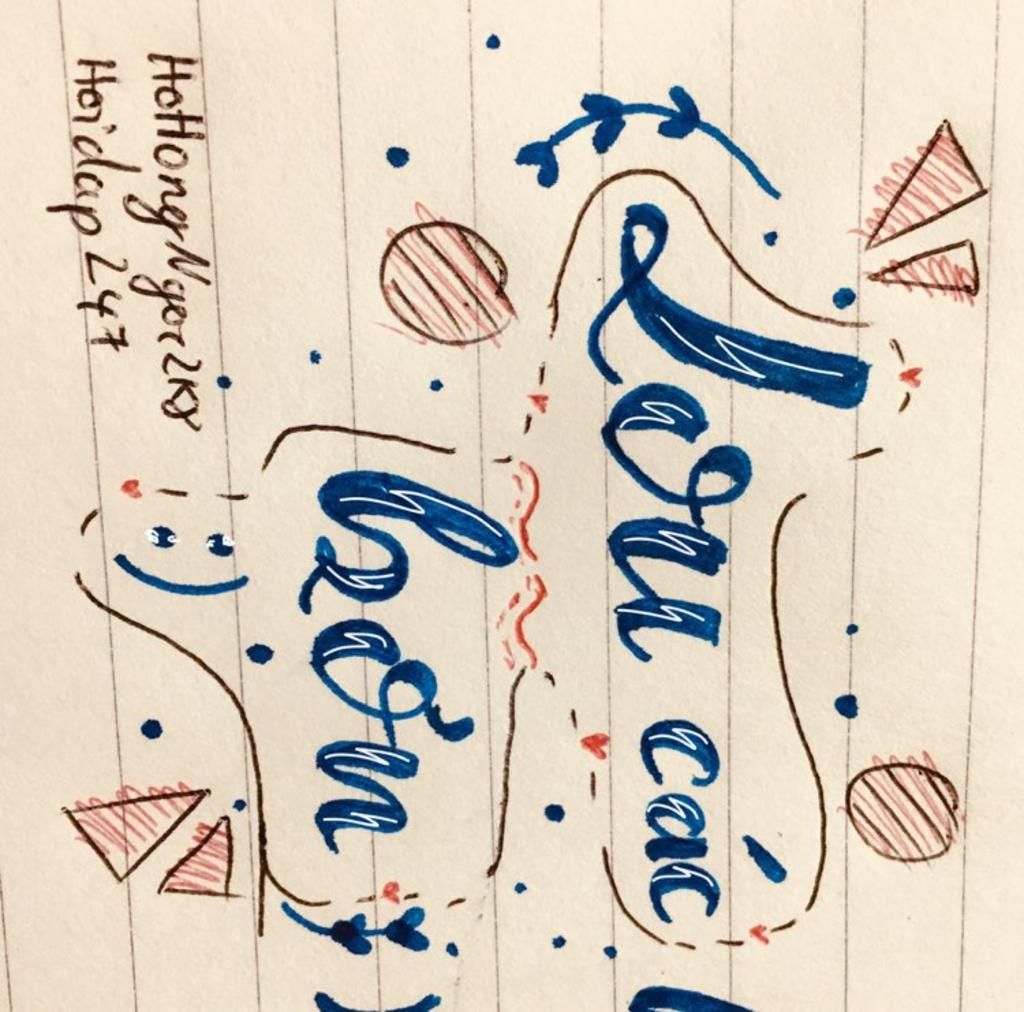 Lơu các
bzơn
:)
HoHongNgoc2K8
Hoidap247